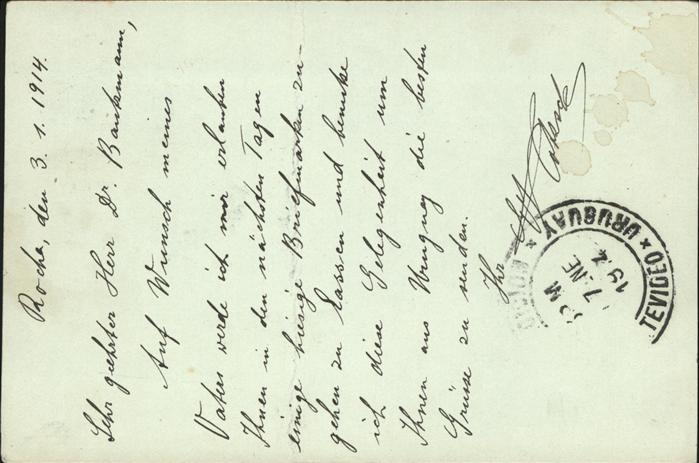 Rocha, den 3. 1. 1914.
Sehr geehrter Herr Dr. Bankmann,
Auf Wunsch meines
Vaters werde ich mir erlauben
Ihnen in den nächsten Tagen
einige hiesige Briefmarken zu-
gehen zu lassen und benutze
ich diese Gelegenheit um
Ihnen aus Uruguay die besten
Grüsse zu senden.
Ihr
TEVIDEO * URUGUAY *
7 ENE